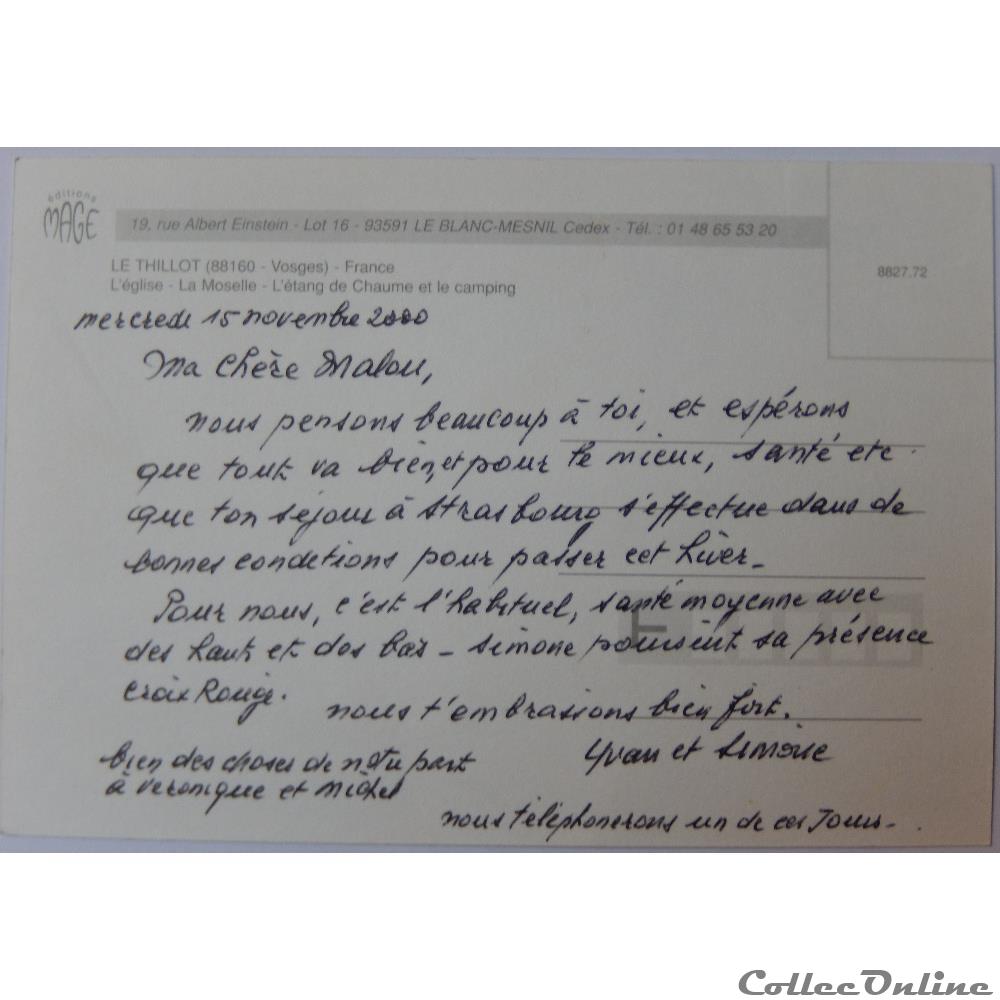 éditions
MAGE
19, rue Albert Einstein - Lot 16 - 93591 LE BLANC-MESNIL Cedex - Tél. : 01 48 65 53 20
LE THILLOT (88160 - Vosges) - France
8827.72
L'église - La Moselle - L'étang de Chaume et le camping
mercredi 15 novembre 2000
Ma chère Malou,
nous pensons beaucoup à toi, et espérons
que tout va bien, et pour le mieux, santé etc.
que ton séjour à Strasbourg s'effectue dans de
bonnes conditions pour passer cet hiver_
Pour nous, c'est l'habituel, santé moyenne avec
des haut et des bas_ Simone poursuit sa présence
Croix Rouge.
nous t'embrassons bien fort.
Yvan et Simone
bien des choses de notre part
à Veronique et Michel
nous téléphonerons un de ces Jours_.
CollecOnline